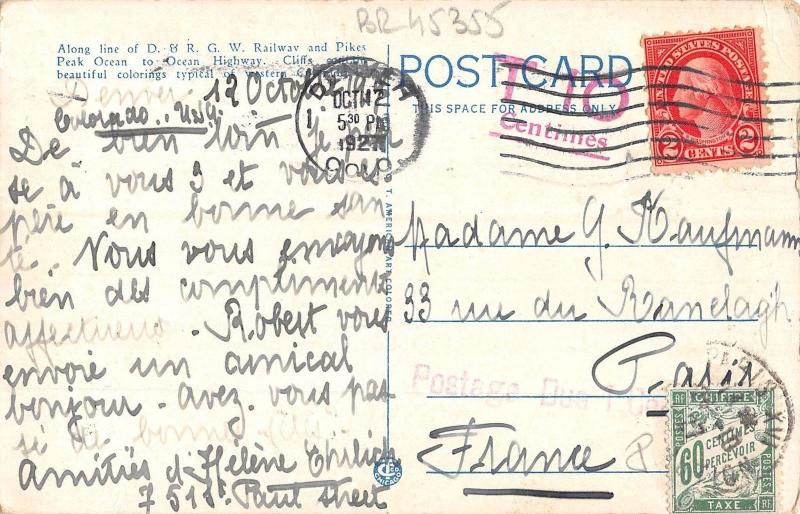 BR 45355
Along line of D. & R. G. W. Railway and Pikes
Peak Ocean to Ocean Highway. Cliffs
beautiful colorings typical of western
POST CARD
THIS SPACE FOR ADDRESS ONLY
Denver 12 Octo
Colorado. U.S.A.
De bien loin je
se à vous 3 et vous
père en bonne san
té. Nous vous envoyons
bien des compliments
affectueux. Robert vous
envoie un amical
bonjour. Avez-vous pas
si de bonnes
Amitiés d'Hélène Ehrlich
Street
DENVER
OCT 12
5 30 PM
1927
COLO.
Centimes
UNITED STATES POSTAGE
2 CENTS 2
Madame G. Kaufmann
33 rue du Ranelagh
Paris
France
Postage Due
RF CHIFFRE RF
POSTES
60 CENTIMES
PERCEVOIR
POSTES
TAXE
PARIS XVI
AMERICAN ART COLORED
CHICAGO